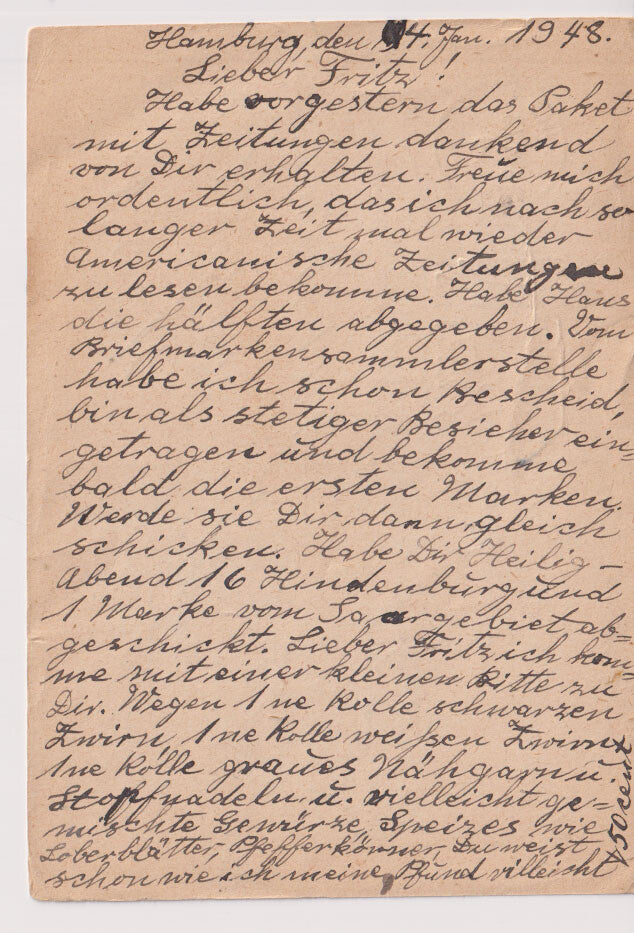 Hamburg, den 14. Jan. 1948.
Lieber Fritz!
Habe vorgestern das Paket
mit Zeitungen dankend
von Dir erhalten. Freue mich
ordentlich, das ich nach so
langer Zeit mal wieder
Americanische Zeitungen
zu lesen bekomme. Habe Hans
die hälften abgegeben. Vom
Briefmarkensammlerstelle
habe ich schon Bescheid,
bin als stetiger Besieher ein=
getragen und bekomme
bald die ersten Marken.
Werde sie Dir dann gleich
schicken. Habe Dir Heilig-
Abend 16 Hindenburg und
1 Marke vom Saargebiet ab=
geschickt. Lieber Fritz ich kom=
me mit einer kleinen Bitte zu
Dir. Wegen 1 ne Rolle schwarzen
Zwirn, 1 ne Rolle weißen Zwirn
1 ne Rolle graues Nähgarn u.
Stopfnadeln u. vielleicht ge=
mischte Gewürze, Speizes wie
Loberblätter, Pfefferkörner, Du weist
schon wie ich meine, Pfund villeicht
50 cent